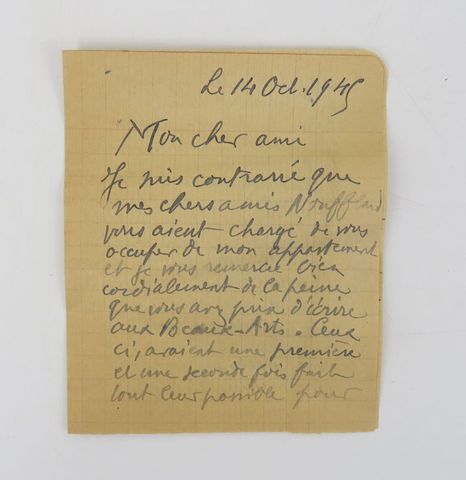 Le 14 Oct. 1945
Mon cher ami
Je suis contrarié que
mes chers amis Noufflard
vous aient chargé de vous
occuper de mon appartement
et je vous remercie bien
cordialement de la peine
que vous avez prise d'écrire
aux Beaux-Arts. Ceux
ci, avaient une première
et une seconde fois fait
tout leur possible pour